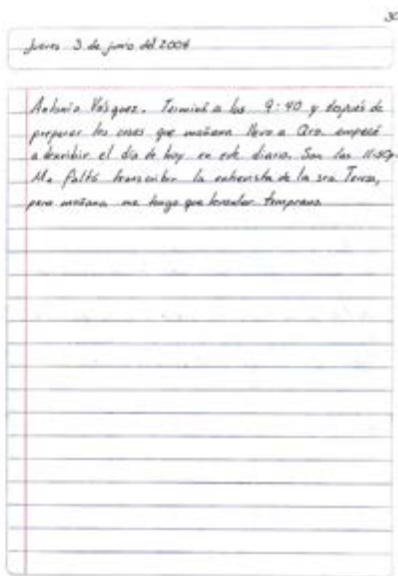 30
Jueves 3 de junio del 2004
Antonia Vásquez. Terminé a las 9:40 y después de
preparar las cosas que mañana llevo a Qro. empecé
a describir el día de hoy en este diario. Son las 11:50p.
Me faltó transcribir la entrevista de la sra Teresa,
pero mañana me tengo que levantar temprano